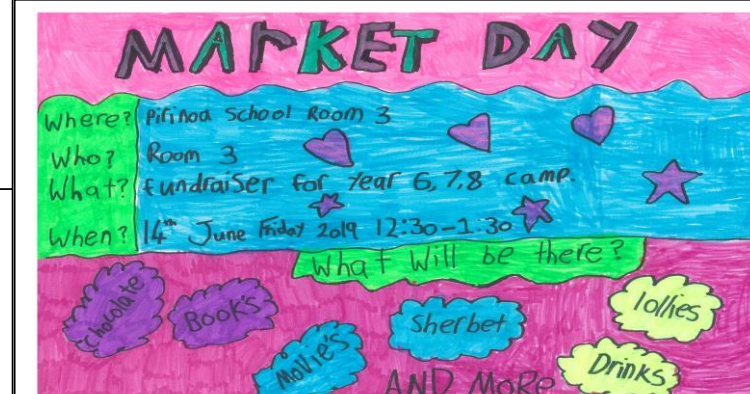 MARKET DAY
Where? Pirinoa School Room 3
Who? Room 3
What? fundraiser for Year 6,7,8 camp.
When? 14th June Friday 2019 12:30-1:30
What Will be there?
Chocolate
Book's
Movie's
Sherbet
lollies
Drinks
AND MoRe